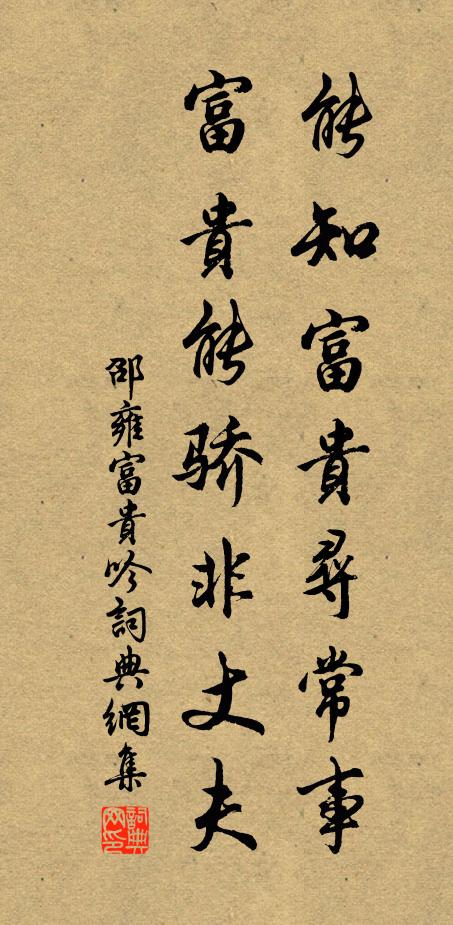 能知富貴尋常事
富貴能骄非丈夫
邵雍富貴吟詞典網集
詞典網印